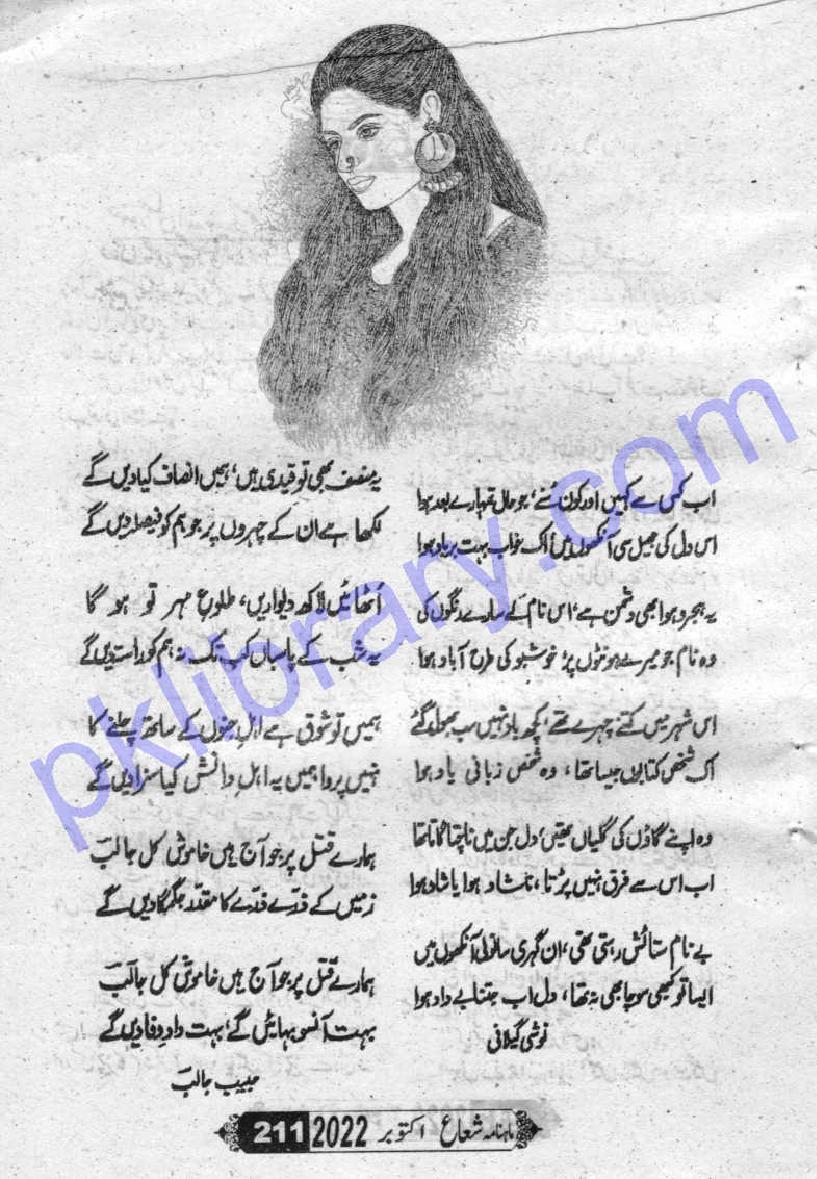 اب کس سے کہیں اور کون سُنے، جو حال تمہارے بعد ہوا
اس دل کی جھیل سی آنکھوں میں اک خواب بہت برباد ہوا
یہ ہجر و ہوا بھی دشمن ہے، اس نام کے سارے رنگوں کی
وہ نام جو میرے ہونٹوں پر خوشبو کی طرح آباد ہوا
اس شہر میں کتنے چہرے تھے، کچھ یاد نہیں سب بھول گئے
اک شخص کتابوں جیسا تھا، وہ شخص زبانی یاد ہوا
وہ اپنے گاؤں کی گلیاں تھیں، دل جن میں ناچتا گاتا تھا
اب اس سے فرق نہیں پڑتا، ناشاد ہوا یا شاد ہوا
بے نام ستائش رہتی تھی، ان گہری سانولی آنکھوں میں
ایسا تو کبھی سوچا بھی نہ تھا، دل اب جتنا بے داد ہوا
نوشی گیلانی
یہ منصف بھی تو قیدی ہیں، ہمیں انصاف کیا دیں گے
لکھا ہے ان کے چہروں پر جو ہم کو فیصلہ دیں گے
اُٹھائیں لاکھ دیواریں، طلوعِ مہر تو ہو گا
یہ شب کے پاسباں کب تک نہ ہم کو راستہ دیں گے
ہمیں تو شوق ہے اہلِ جنوں کے ساتھ چلنے کا
نہیں پروا ہمیں یہ اہلِ دانش کیا سزا دیں گے
ہمارے قتل پر جو آج ہیں خاموش کل جالب
زمیں کے ذرّے ذرّے کا مقدر جگمگا دیں گے
ہمارے قتل پر جو آج ہیں خاموش کل جالب
بہت آنسو بہائیں گے، بہت دادِ وفا دیں گے
حبیب جالب
ماہنامہ شعاع اکتوبر 2022 211
pklibrary.com